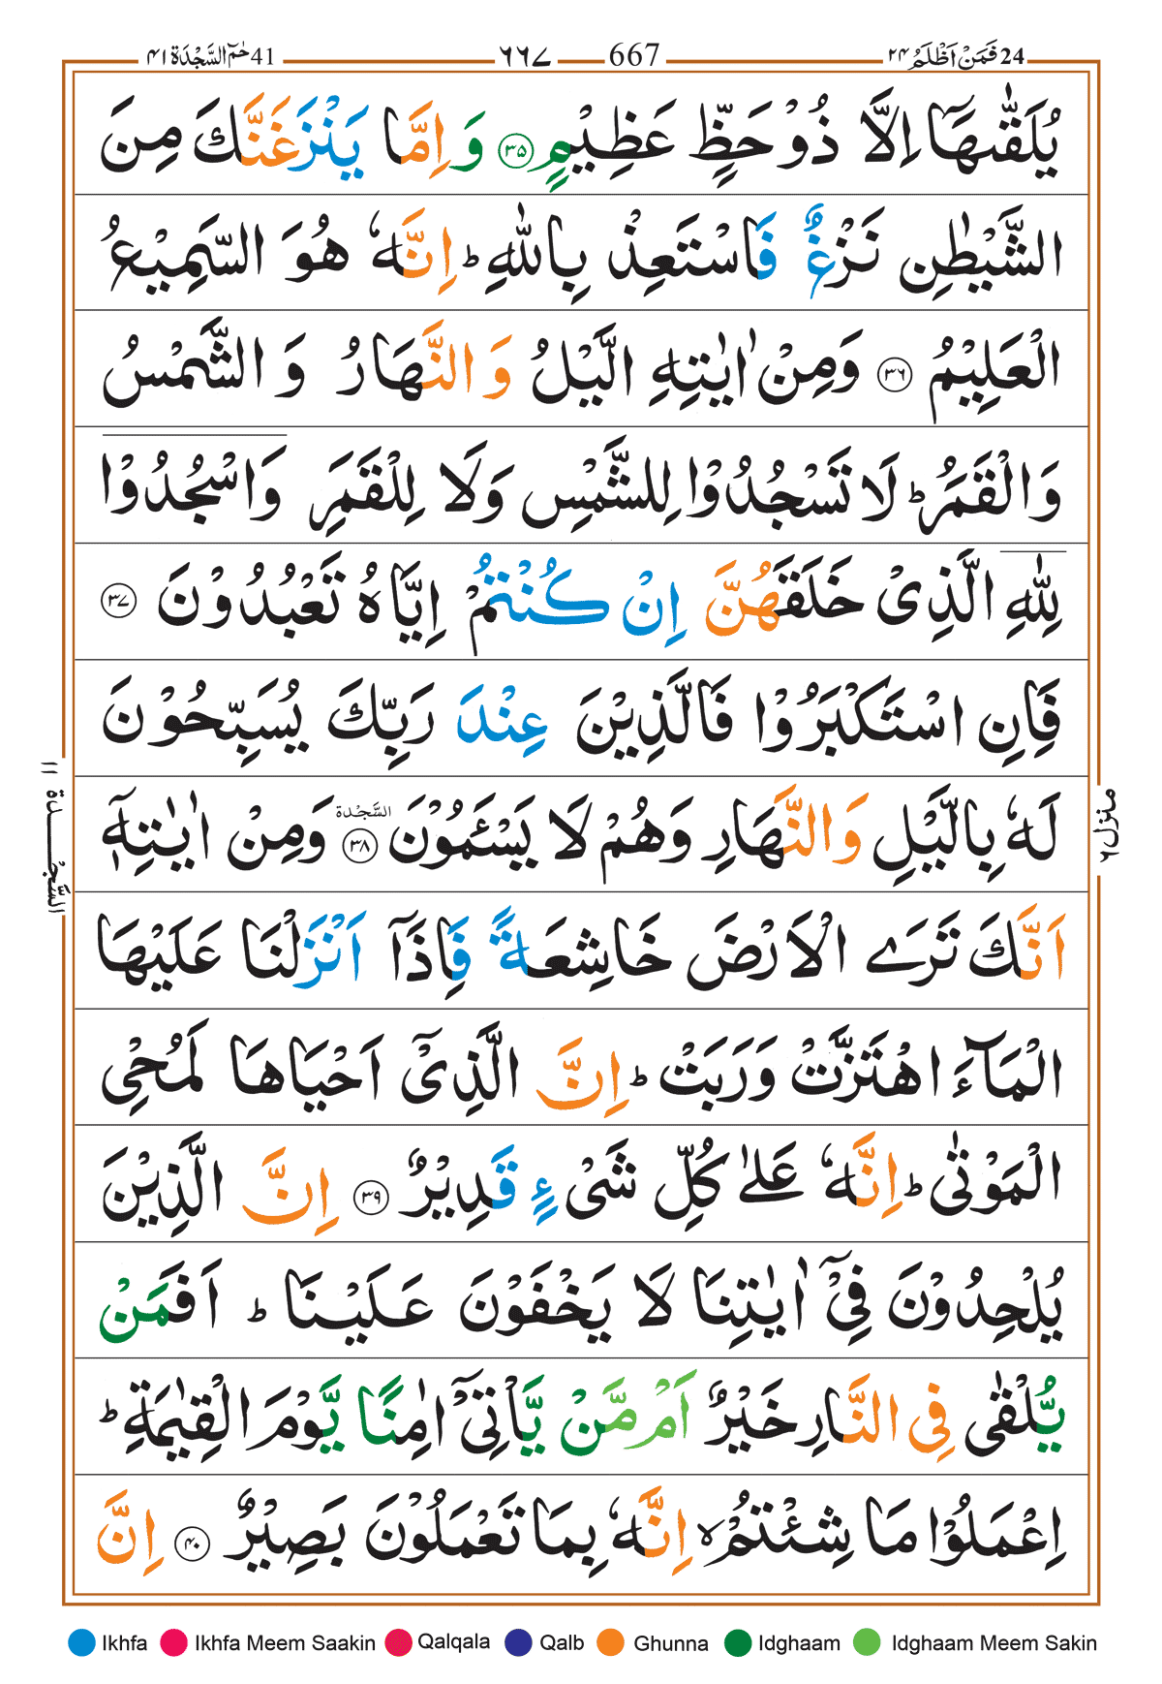 41 حٰمٓ السَّجْدَة ۴۱
۶۶۷ 667
24 فَمَنْ اَظْلَمُ ۲۴
يُلَقّٰىهَاۤ اِلَّا ذُوْ حَظٍّ عَظِيْمٍ ۳۵ وَ اِمَّا يَنْزَغَنَّكَ مِنَ
الشَّيْطٰنِ نَزْغٌ فَاسْتَعِذْ بِاللّٰهِ ؕ اِنَّهٗ هُوَ السَّمِيْعُ
الْعَلِيْمُ ۳۶ وَمِنْ اٰيٰتِهِ الَّيْلُ وَ النَّهَارُ وَ الشَّمْسُ
وَالْقَمَرُ ؕ لَا تَسْجُدُوْا لِلشَّمْسِ وَلَا لِلْقَمَرِ وَاسْجُدُوْا
لِلّٰهِ الَّذِىْ خَلَقَهُنَّ اِنْ كُنْتُمْ اِيَّاهُ تَعْبُدُوْنَ ۳۷
فَاِنِ اسْتَكْبَرُوْا فَالَّذِيْنَ عِنْدَ رَبِّكَ يُسَبِّحُوْنَ
لَهٗ بِالَّيْلِ وَالنَّهَارِ وَهُمْ لَا يَسْـَٔمُوْنَ ۳۸ السَّجْدَة وَمِنْ اٰيٰتِهٖۤ
اَنَّكَ تَرَى الْاَرْضَ خَاشِعَةً فَاِذَاۤ اَنْزَلْنَا عَلَيْهَا
الْمَآءَ اهْتَزَّتْ وَرَبَتْ ؕ اِنَّ الَّذِىْۤ اَحْيَاهَا لَمُحْىِ
الْمَوْتٰى ؕ اِنَّهٗ عَلٰى كُلِّ شَىْءٍ قَدِيْرٌ ۳۹ اِنَّ الَّذِيْنَ
يُلْحِدُوْنَ فِىْۤ اٰيٰتِنَا لَا يَخْفَوْنَ عَلَيْنَا ؕ اَفَمَنْ
يُّلْقٰى فِى النَّارِ خَيْرٌ اَمْ مَّنْ يَّاْتِىْۤ اٰمِنًا يَّوْمَ الْقِيٰمَةِ ؕ
اِعْمَلُوْا مَا شِئْتُمْ ۙ اِنَّهٗ بِمَا تَعْمَلُوْنَ بَصِيْرٌ ۴۰ اِنَّ
السَّجْدَة ۱۱
منزل ۶
Ikhfa Ikhfa Meem Saakin Qalqala Qalb Ghunna Idghaam Idghaam Meem Sakin